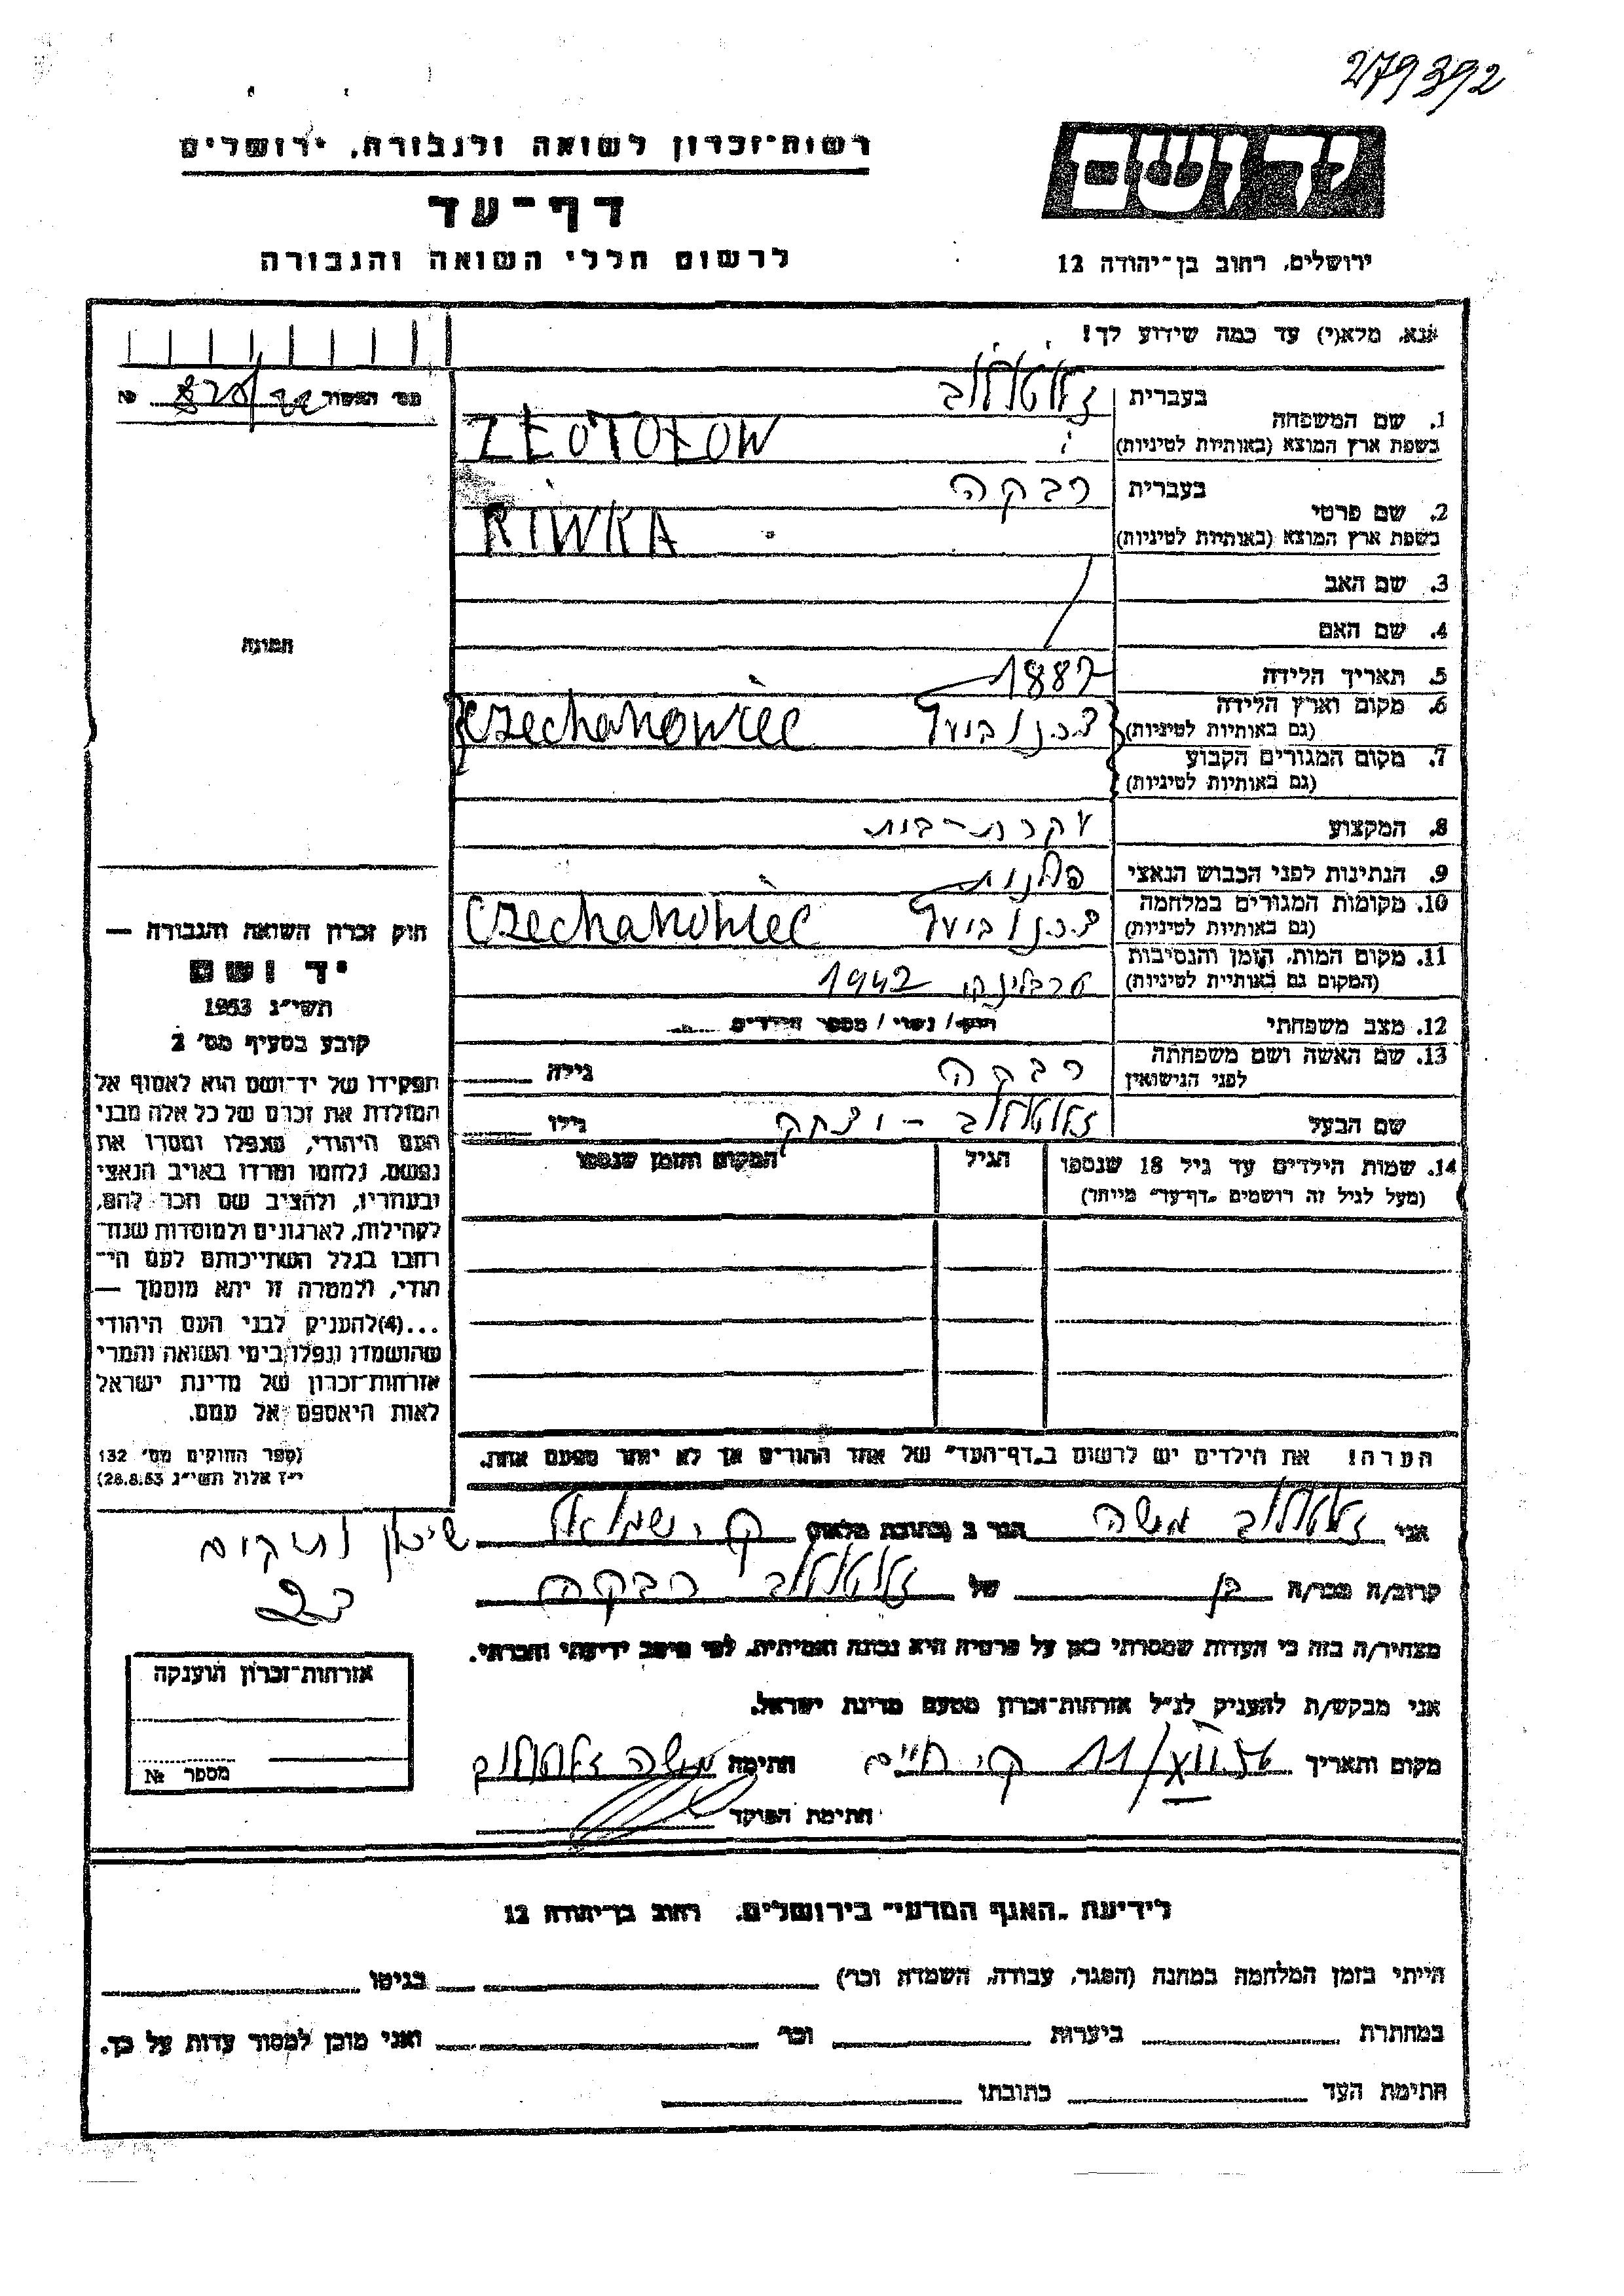 279392
רשות־זכרון לשואה ולגבורה, ירושלים
דף־עד
לרשום חללי השואה והגבורה
יד ושם
ירושלים, רחוב בן־יהודה 12
אנא, מלא(י) עד כמה שידוע לך!
מס׳ האסור №
1. שם המשפחה
בעברית זלוטולוב
בשפת ארץ המוצא (באותיות לטיניות) ZŁOTOŁOW
2. שם פרטי
בעברית רבקה
בשפת ארץ המוצא (באותיות לטיניות) RIWKA
3. שם האב
4. שם האם
5. תאריך הלידה 1887
6. מקום וארץ הלידה
(גם באותיות לטיניות) Czechanowiec
7. מקום המגורים הקבוע
(גם באותיות לטיניות)
8. המקצוע עקרת־בית
9. הנתינות לפני הכבוש הנאצי פולנית
10. מקומות המגורים במלחמה
(גם באותיות לטיניות) Czechanowiec
11. מקום המות, הזמן והנסיבות
(המקום גם באותיות לטיניות) טרבלינקה 1942
12. מצב משפחתי רוק/ נשוי/ מספר הילדים
13. שם האשה ושם משפחתה
לפני הנישואין רבקה גילה
שם הבעל זלוטולוב – יצחק גילו
14. שמות הילדים עד גיל 18 שנספו הגיל המקום והזמן שנספו
(מעל לגיל זה רושמים "דף־עד" מיוחד)
הערה! את הילדים יש לרשום ב"דף־העד" של אחד ההורים אך לא יותר מפעם אחת.
תמונה
חוק זכרון השואה והגבורה —
יד ושם
תשי״ג 1953
קובע בסעיף מס׳ 2
תפקידו של יד־ושם הוא לאסוף אל
המולדת את זכרם של כל אלה מבני
העם היהודי, שנפלו ומסרו את
נפשם, נלחמו ומרדו באויב הנאצי
ובעוזריו, ולהציב שם וזכר להם,
לקהילות, לארגונים ולמוסדות שנח־
רבו בגלל השתייכותם לעם הי־
הודי, ולמטרה זו יהא מוסמך —
...(4)להעניק לבני העם היהודי
שהושמדו ונפלו בימי השואה והמרי
אזרחות־זכרון של מדינת ישראל
לאות היאספם אל עמם.
(ספר החוקים מס׳ 132
י״ז אלול תשי״ג 28.8.53)
אני זלוטולוב משה הגר ב (כתובת מלאה) ק. שמואל שיכון ותיקים
קרוב/ה מכר/ה בן של זלוטולוב רבקה
מצהיר/ה בזה כי העדות שמסרתי כאן על פרטיה היא נכונה ואמיתית, לפי מיטב ידיעתי והכרתי.
אני מבקש/ת להעניק לנ״ל אזרחות־זכרון מטעם מדינת ישראל.
מקום ותאריך ק. חיים חתימה משה זלוטולוב
חתימת הפוקד
אזרחות־זכרון הוענקה
מספר №
לידיעת "האגף המדעי" בירושלים, רחוב בן־יהודה 12
הייתי בזמן המלחמה במחנה (הסגר, עבודה, השמדה וכו׳) בגיטו
במחתרת ביערות וכו׳ ואני מוכן למסור עדות על כך.
חתימת העד כתובתו